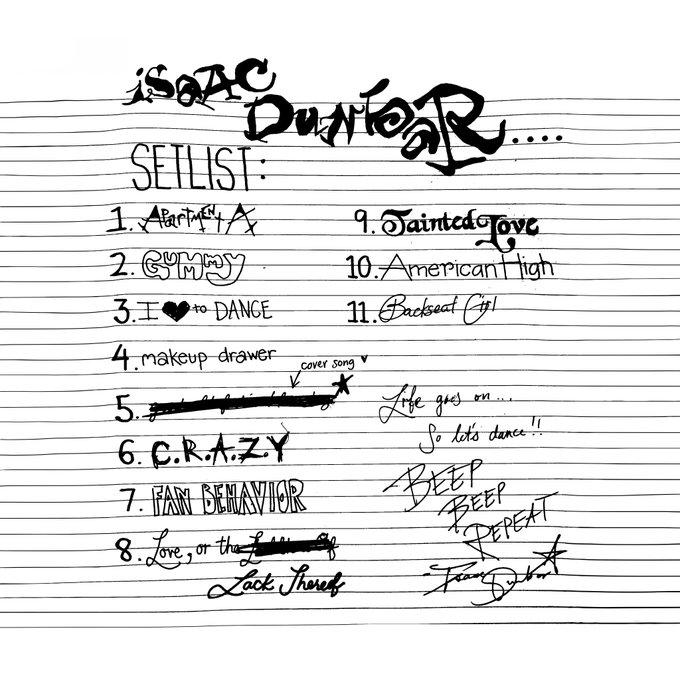 iSAAC
DuNbAR....
SETLIST:
1. ApartMENt A
2. GUMMY
3. I ♥ to DANCE
4. makeup drawer
cover song ♥
5.
6. C.R.A.Z.Y
7. FAN BEHAVIOR
8. Love, or the
Lack Thereof
9. Tainted Love
10. American High
11. Backseat Girl
Life goes on...
So let's dance!!
BEEP
BEEP
REPEAT
- Isaac Dunbar